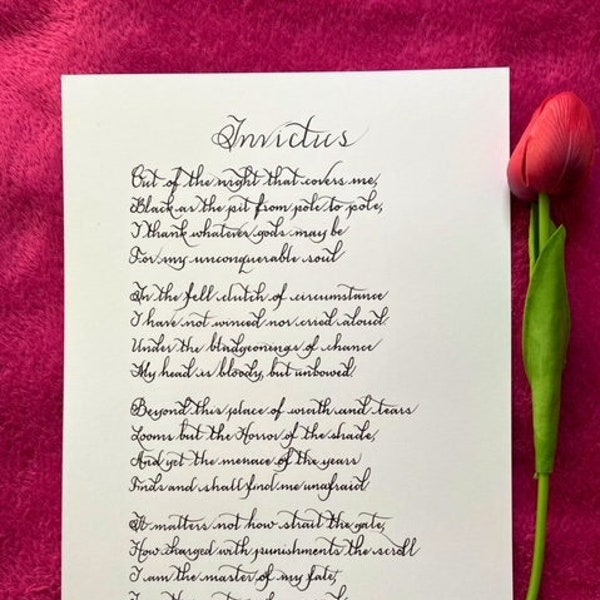 Invictus
Out of the night that covers me,
Black as the pit from pole to pole,
I thank whatever gods may be
For my unconquerable soul
In the fell clutch of circumstance
I have not winced nor cried aloud.
Under the bludgeonings of chance
My head is bloody, but unbowed.
Beyond this place of wrath and tears
Looms but the Horror of the shade,
And yet the menace of the years
Finds and shall find me unafraid
It matters not how strait the gate,
How charged with punishments the scroll
I am the master of my fate,